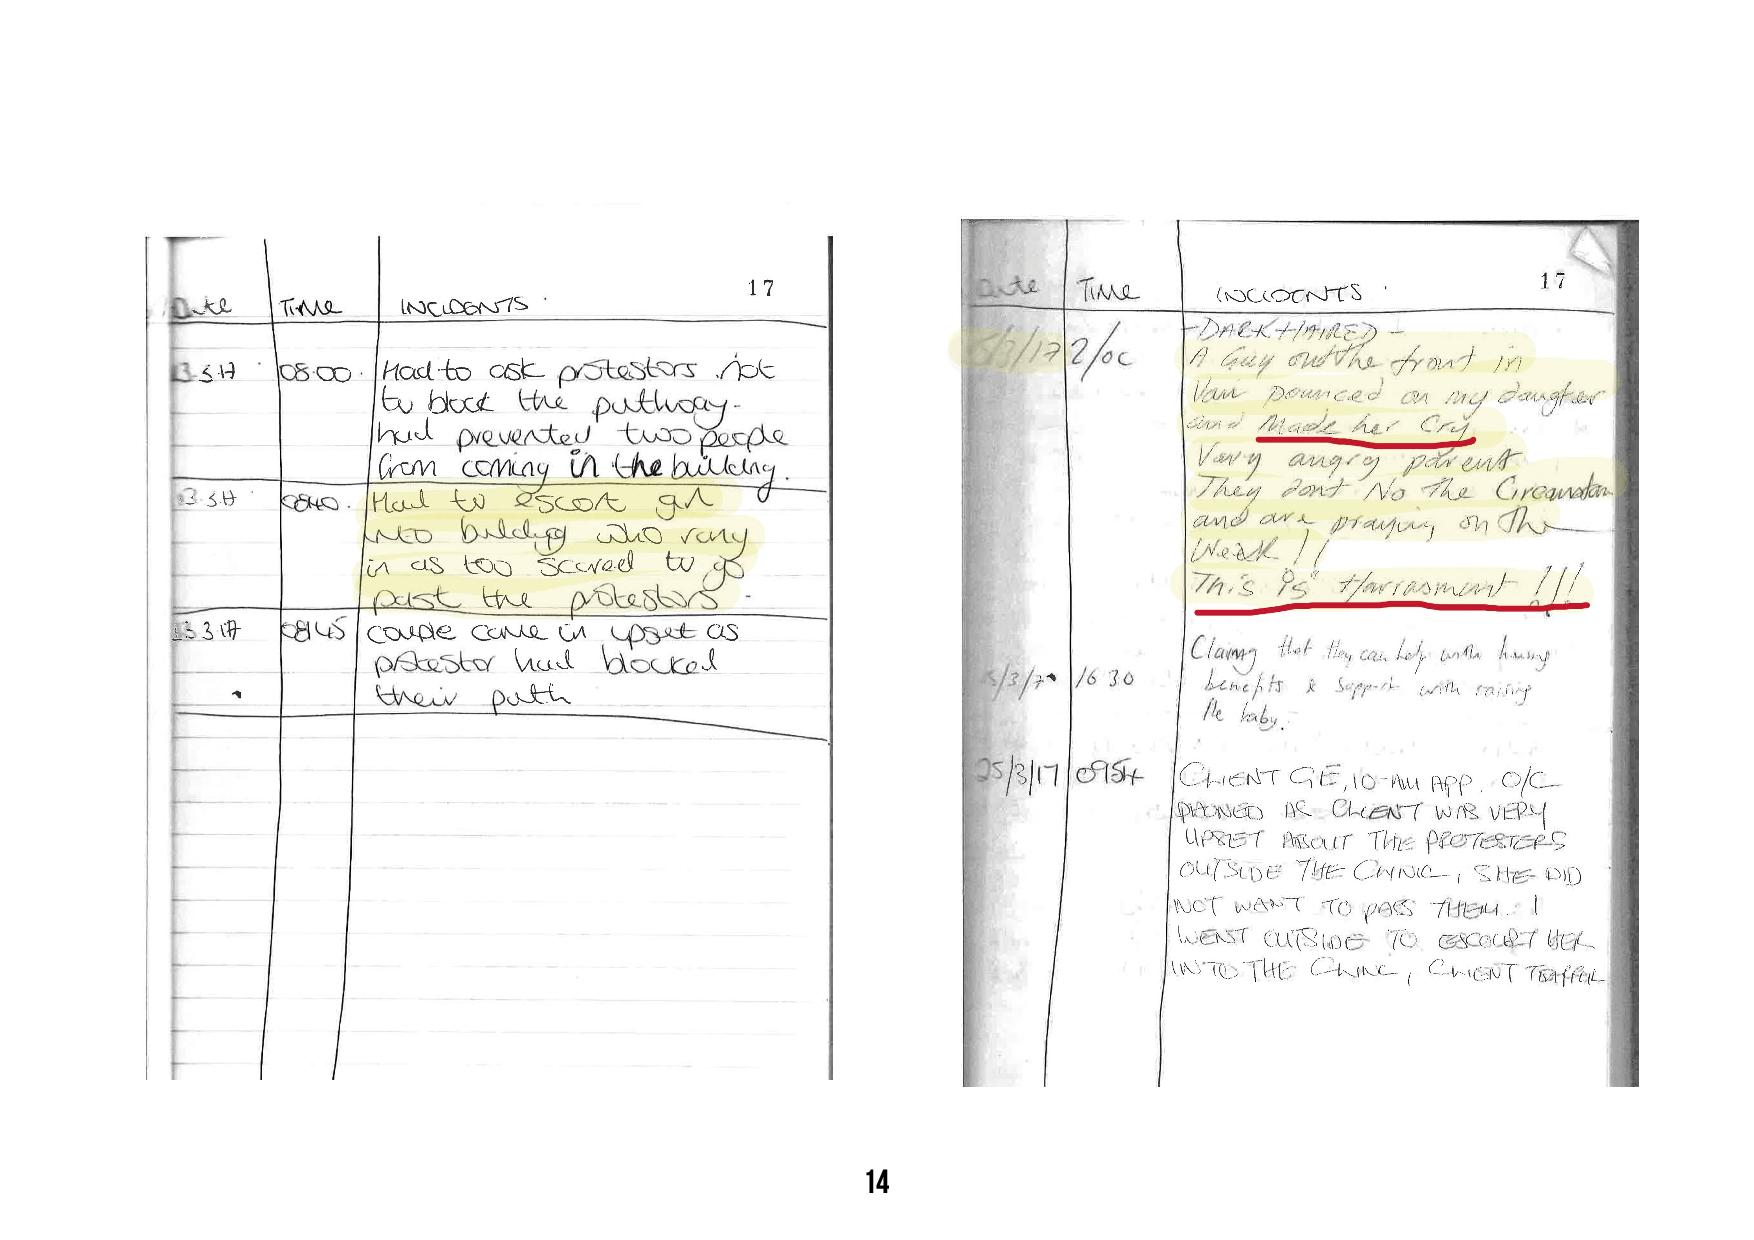 17
Date Time INCIDENTS
3.3.17 08:00. Had to ask protestors not
to block the pathway.
had prevented two people
from coming in the building.
3.3.17 0840. Had to escort girl
into building who rang
in as too scared to go
past the protestors.
3.3.17 0845 couple came in upset as
protestor had blocked
their path
17
Date Time INCIDENTS
-DARKHAIRED-
/3/17 A Guy out the front in
Van pounced on my daugter
and Made her Cry
Very angry parent
They dont No the
and are praying on the
Weak !!
This is Harrasment !!!
1630 Claiming that they can help with housing
benefits & support with raising
the baby.
25/3/17 0954 CLIENT GE, 10-AM APP. O/C
PHONED AS CLIENT WAS VERY
UPSET ABOUT THE PROTESTERS
OUTSIDE THE CLINIC, SHE DID
NOT WANT TO PASS THEM. I
WENT OUTSIDE TO ESCOURT HER
INTO THE CLINIC, CLIENT
14